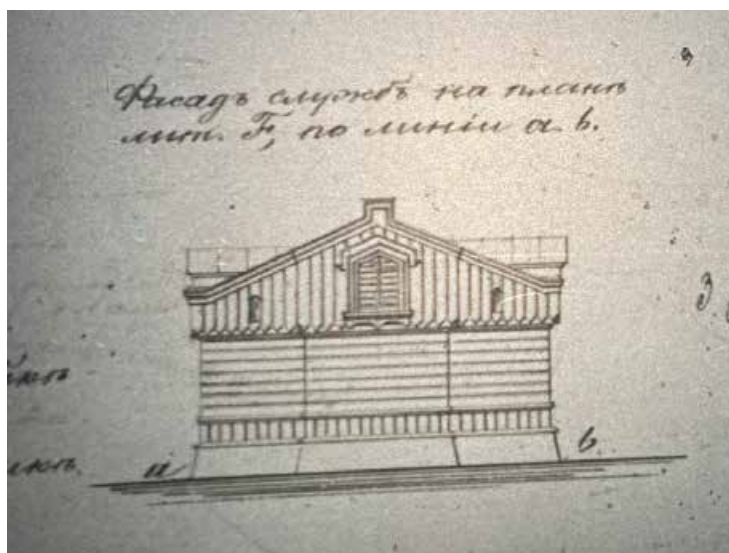 Фасадъ службъ на планѣ
лит. F, по линіи a. b.
a
b.